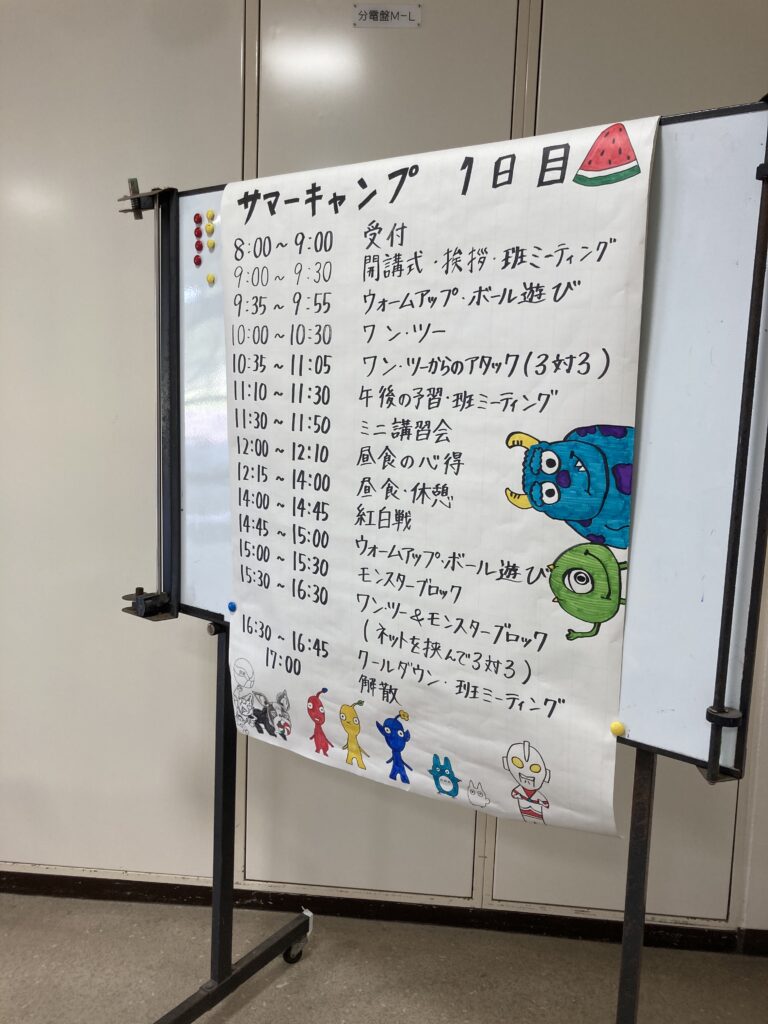 分電盤M-L
サマーキャンプ 1日目
8:00～9:00 受付
9:00～9:30 開講式・挨拶・班ミーティング
9:35～9:55 ウォームアップ・ボール遊び
10:00～10:30 ワン・ツー
10:35～11:05 ワン・ツーからのアタック(3対3)
11:10～11:30 午後の予習・班ミーティング
11:30～11:50 ミニ講習会
12:00～12:10 昼食の心得
12:15～14:00 昼食・休憩
14:00～14:45 紅白戦
14:45～15:00 ウォームアップ・ボール遊び
15:00～15:30 モンスターブロック
15:30～16:30 ワン・ツー&モンスターブロック
(ネットを挟んで3対3)
16:30～16:45 クールダウン・班ミーティング
17:00 解散